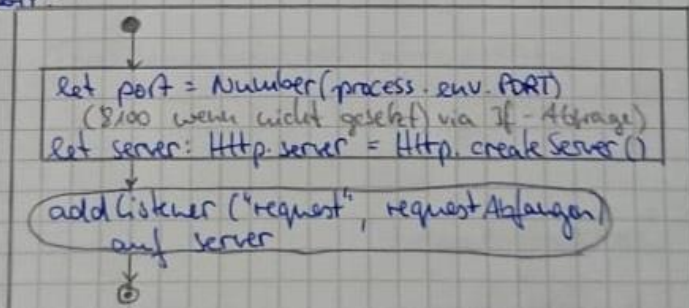 let port = Number(process.env.PORT)
(8100 wenn nicht gesetzt) via If-Abfrage)
let server: Http.server = Http.createServer()
addListener ("request", requestAbfangen)
auf server